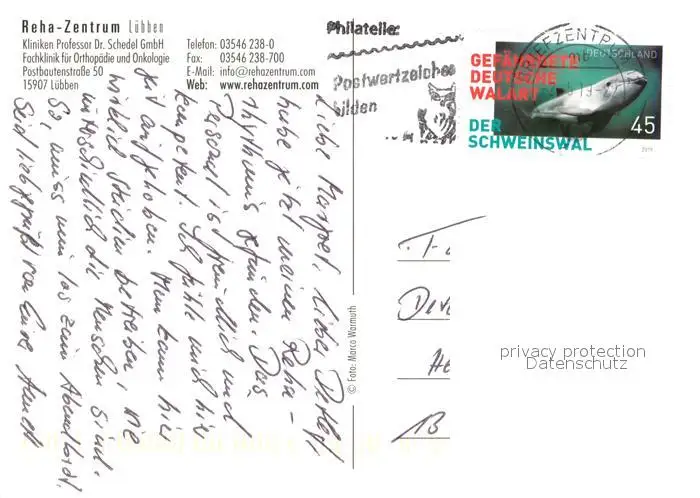 Reha-Zentrum Lübben
Kliniken Professor Dr. Schedel GmbH
Fachklinik für Orthopädie und Onkologie
Postbautenstraße 50
15907 Lübben
Telefon: 03546 238-0
Fax: 03546 238-700
E-Mail: info@rehazentrum.com
Web: www.rehazentrum.com
Philatelie:
Postwertzeichen
bilden
BRIEFZENTRUM
DEUTSCHLAND
GEFÄHRDETE
DEUTSCHE
WALART
DER
SCHWEINSWAL
45
2019
Liebe Margret, lieber Detlef,
habe jetzt meinen Reha-
rhythmus gefunden. Das
Personal ist freundlich und
kompetent. Ich fühle mich hier
gut aufgehoben. Man kann hier
wirklich Studien betreiben, wie
unterschiedlich die Menschen sind.
So, muss nun los zum Abendbrot.
Seid lieb gegrüßt von Eurer
© Foto: Marco Warmuth
B
privacy protection
Datenschutz